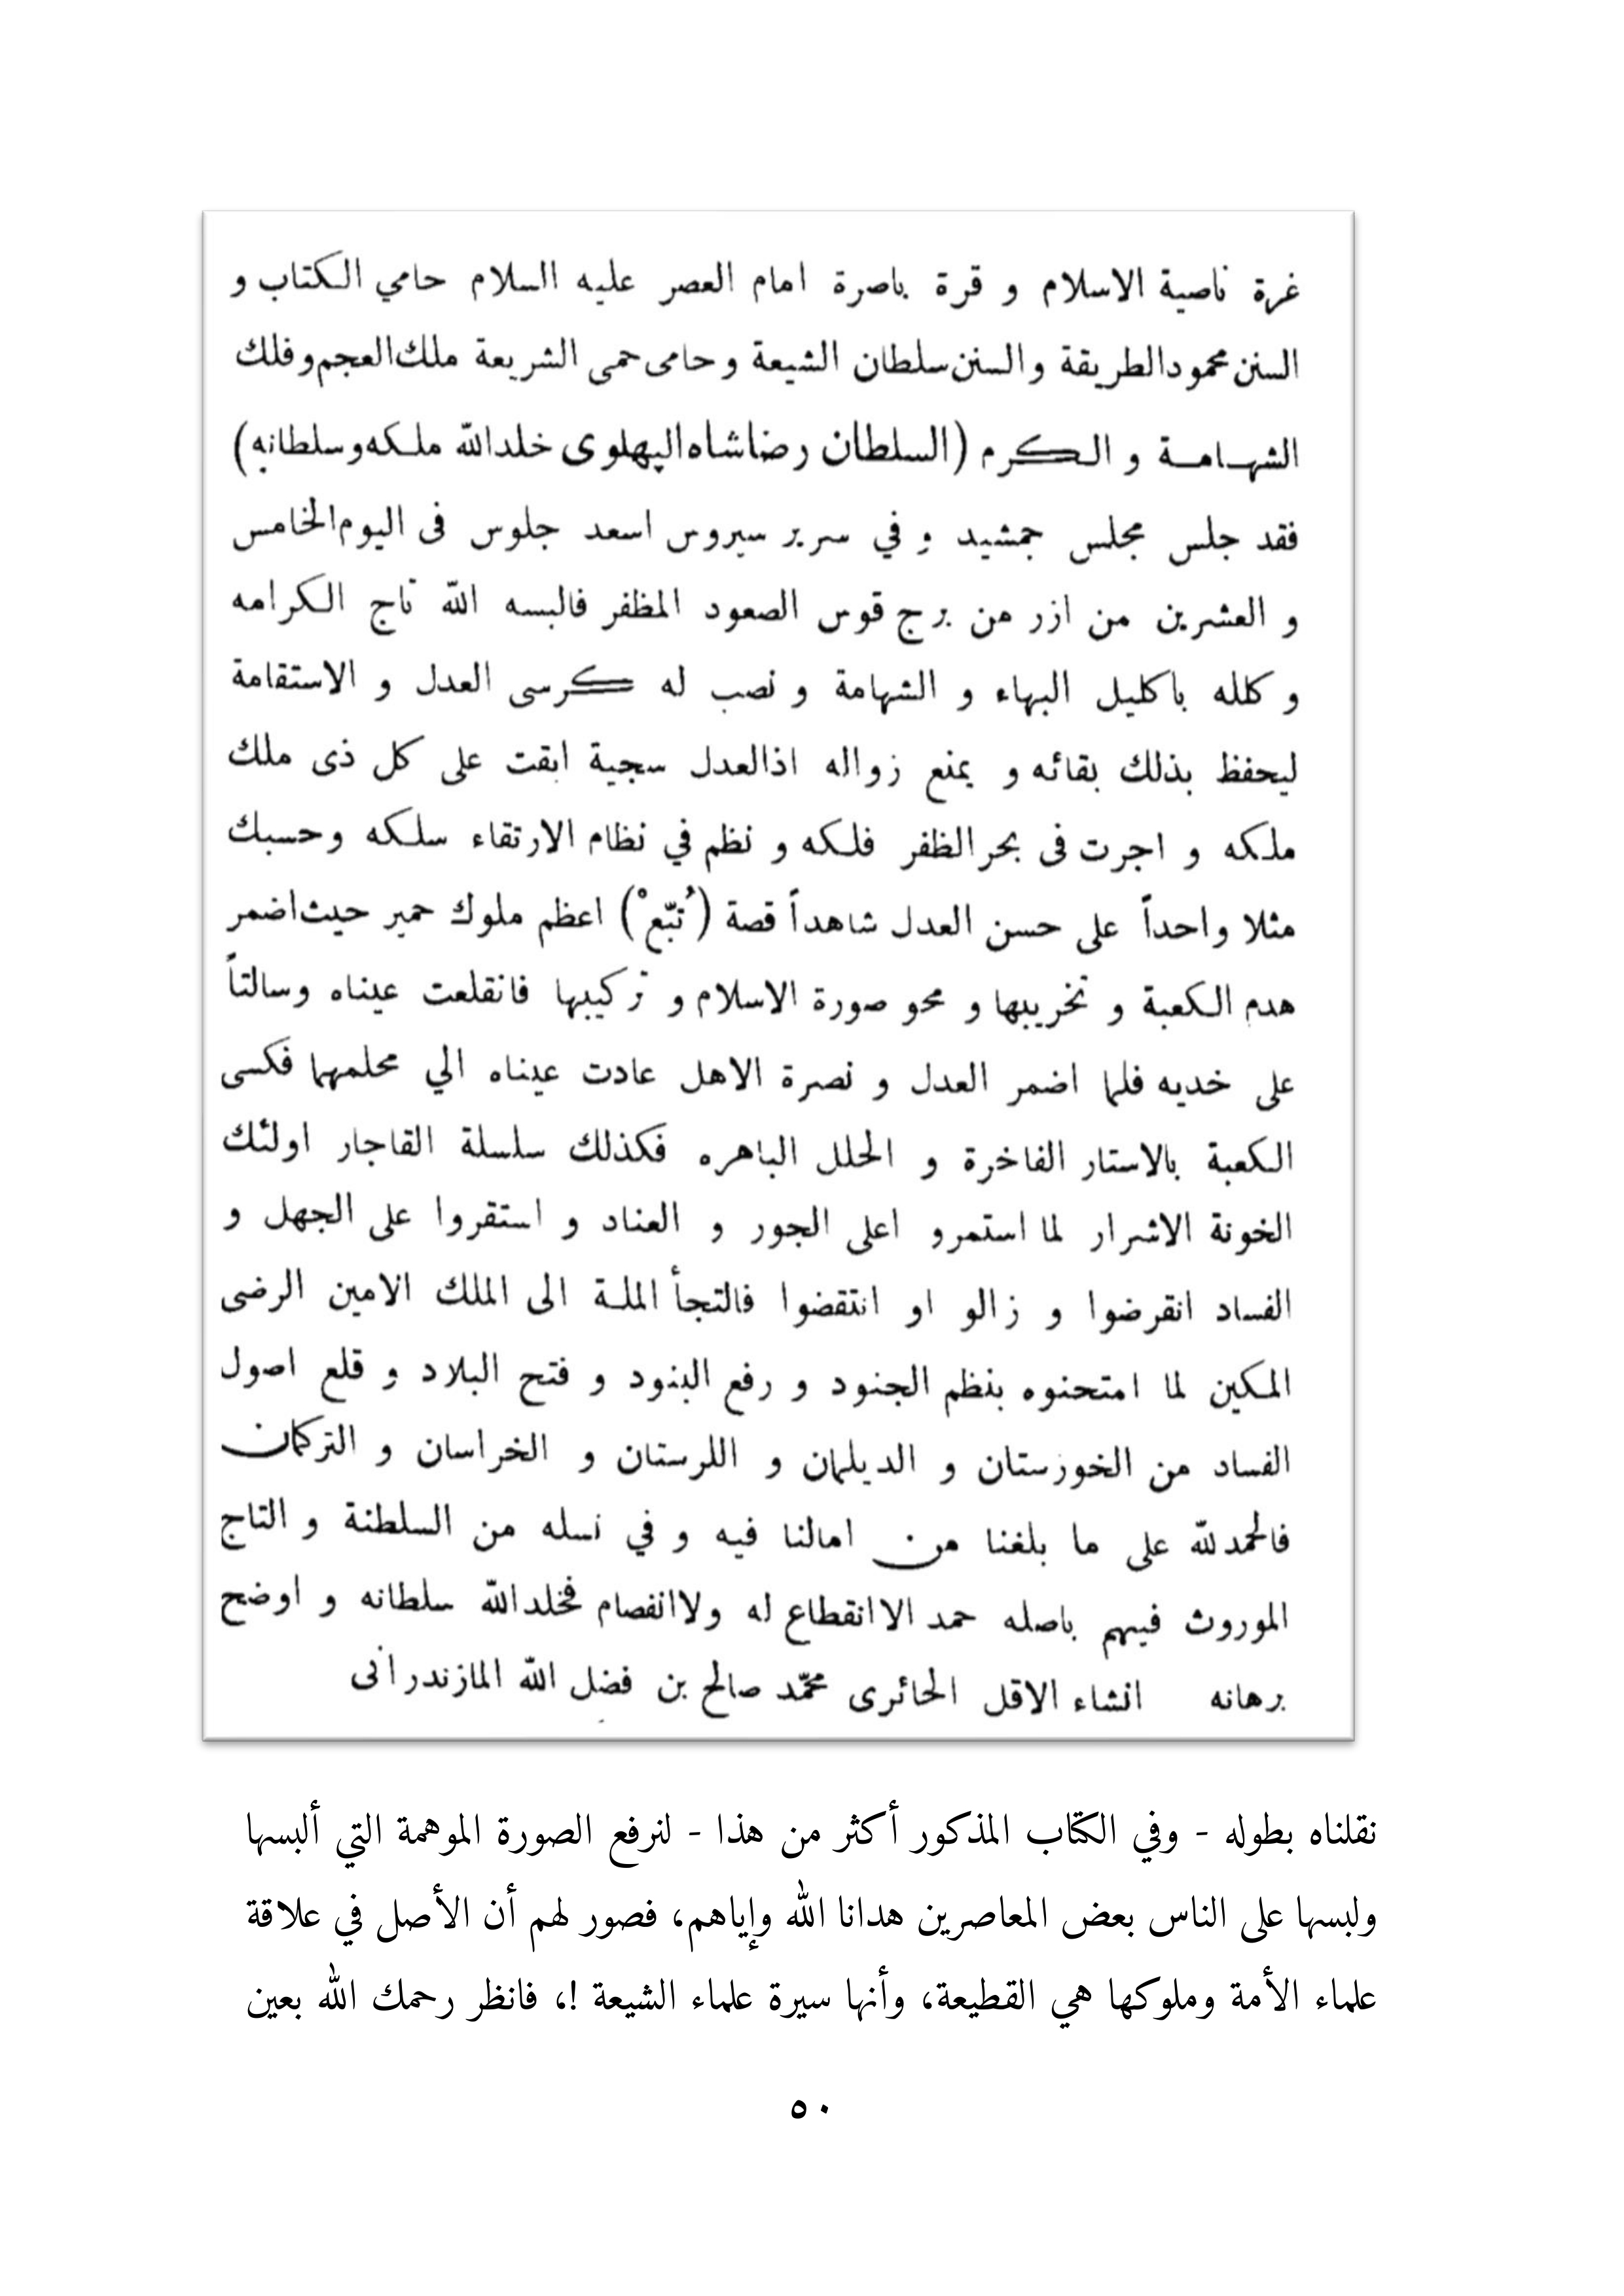 غرة ناصية الاسلام و قرة باصرة امام العصر عليه السلام حامي الكتاب و
السنن محمودالطريقة والسنن سلطان الشيعة وحامى حمى الشريعة ملك العجم وفلك
الشهامة و الكرم (السلطان رضاشاه البهلوى خلدالله ملكه وسلطانه)
فقد جلس مجلس جمشيد و في سرير سيروس اسعد جلوس فى اليوم الخامس
و العشرين من ازر من برج قوس الصعود المظفر فالبسه الله تاج الكرامه
و كلله باكليل البهاء و الشهامة و نصب له كرسى العدل و الاستقامة
ليحفظ بذلك بقائه و يمنع زواله اذالعدل سجية ابقت على كل ذى ملك
ملكه و اجرت فى بحر الظفر فلكه و نظم في نظام الارتقاء سلكه وحسبك
مثلا واحداً على حسن العدل شاهداً قصة (تُبّعْ) اعظم ملوك حمير حيث اضمر
هدم الكعبة و تخريبها و محو صورة الاسلام و تركيبها فانقلعت عيناه وسالتاً
على خديه فلما اضمر العدل و نصرة الاهل عادت عيناه الي محلمهما فكسى
الكعبة بالاستار الفاخرة و الحلل الباهره فكذلك سلسلة القاجار اولئك
الخونة الاشرار لما استمرو اعلى الجور و العناد و استقروا على الجهل و
الفساد انقرضوا و زالو او انتقضوا فالتجأ الملة الى الملك الامين الرضى
المكين لما امتحنوه بنظم الجنود و رفع البنود و فتح البلاد و قلع اصول
الفساد من الخوزستان و الديلمان و اللرستان و الخراسان و التركمان
فالحمدلله على ما بلغنا من امالنا فيه و في نسله من السلطنة و التاج
الموروث فيهم باصله حمد الاانقطاع له ولاانفصام فخلدالله سلطانه و اوضح
برهانه انشاء الاقل الحائرى محمّد صالح بن فضل الله المازندرانى
نقلناه بطوله - وفي الكتاب المذكور أكثر من هذا - لنرفع الصورة الموهمة التي ألبسها
ولبسها على الناس بعض المعاصرين هدانا الله وإياهم، فصور لهم أن الأصل في علاقة
علماء الأمة وملوكها هي القطيعة، وأنها سيرة علماء الشيعة !، فانظر رحمك الله بعين
٥٠